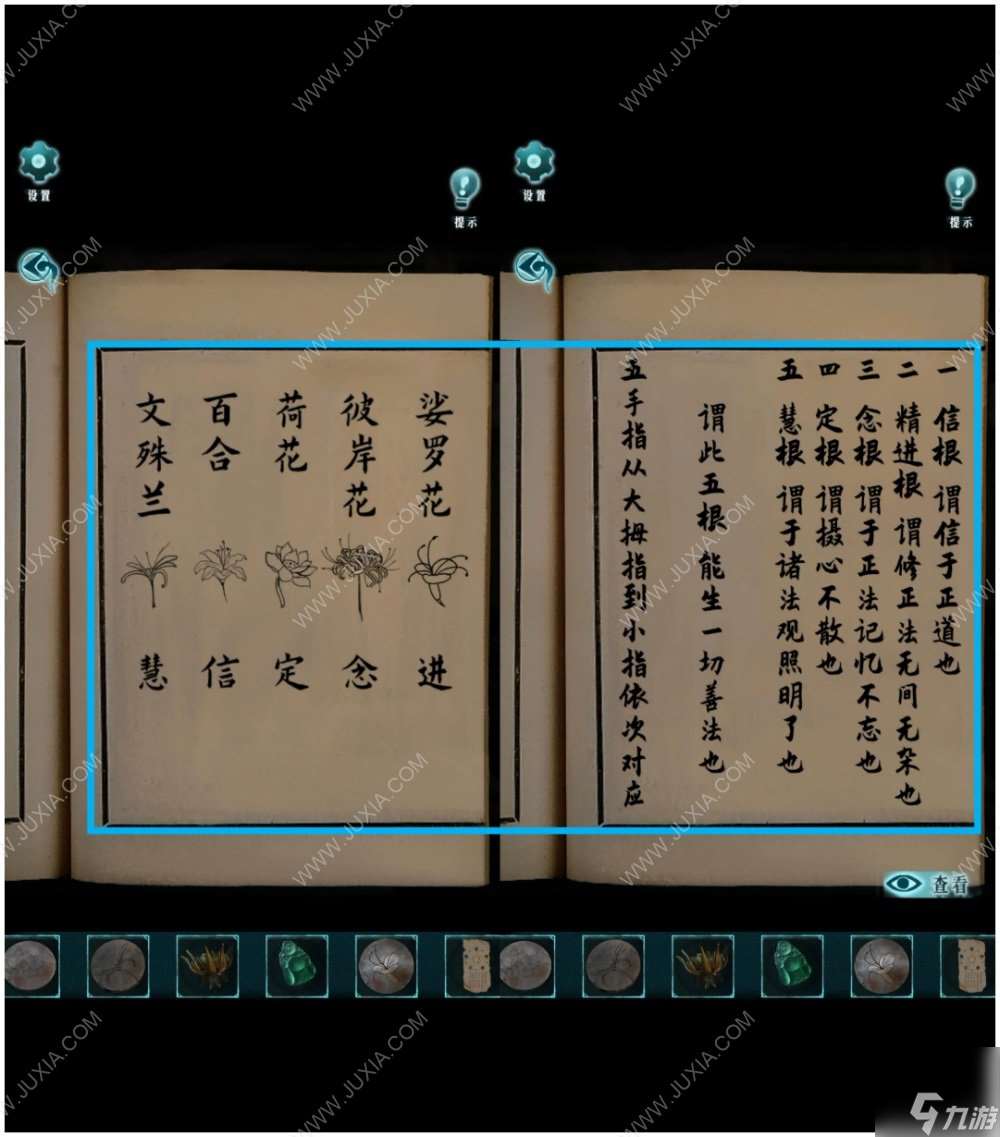 设置
提示
娑罗花
彼岸花
荷花
百合
文殊兰
进
念
定
信
慧
设置
提示
一 信根 谓信于正道也
二 精进根 谓修正法无间无杂也
三 念根 谓于正法记忆不忘也
四 定根 谓摄心不散也
五 慧根 谓于诸法观照明了也
谓此五根能生一切善法也
五手指从大拇指到小指依次对应
查看
WWW.JUXIA.COM
九游